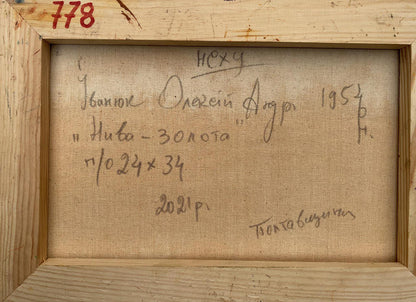 778
НСХУ
Іванюк Олексій Андр. 1957 р.н.
"Нива - золота"
п/о 24 x 34
2021 р.
Полтавщина